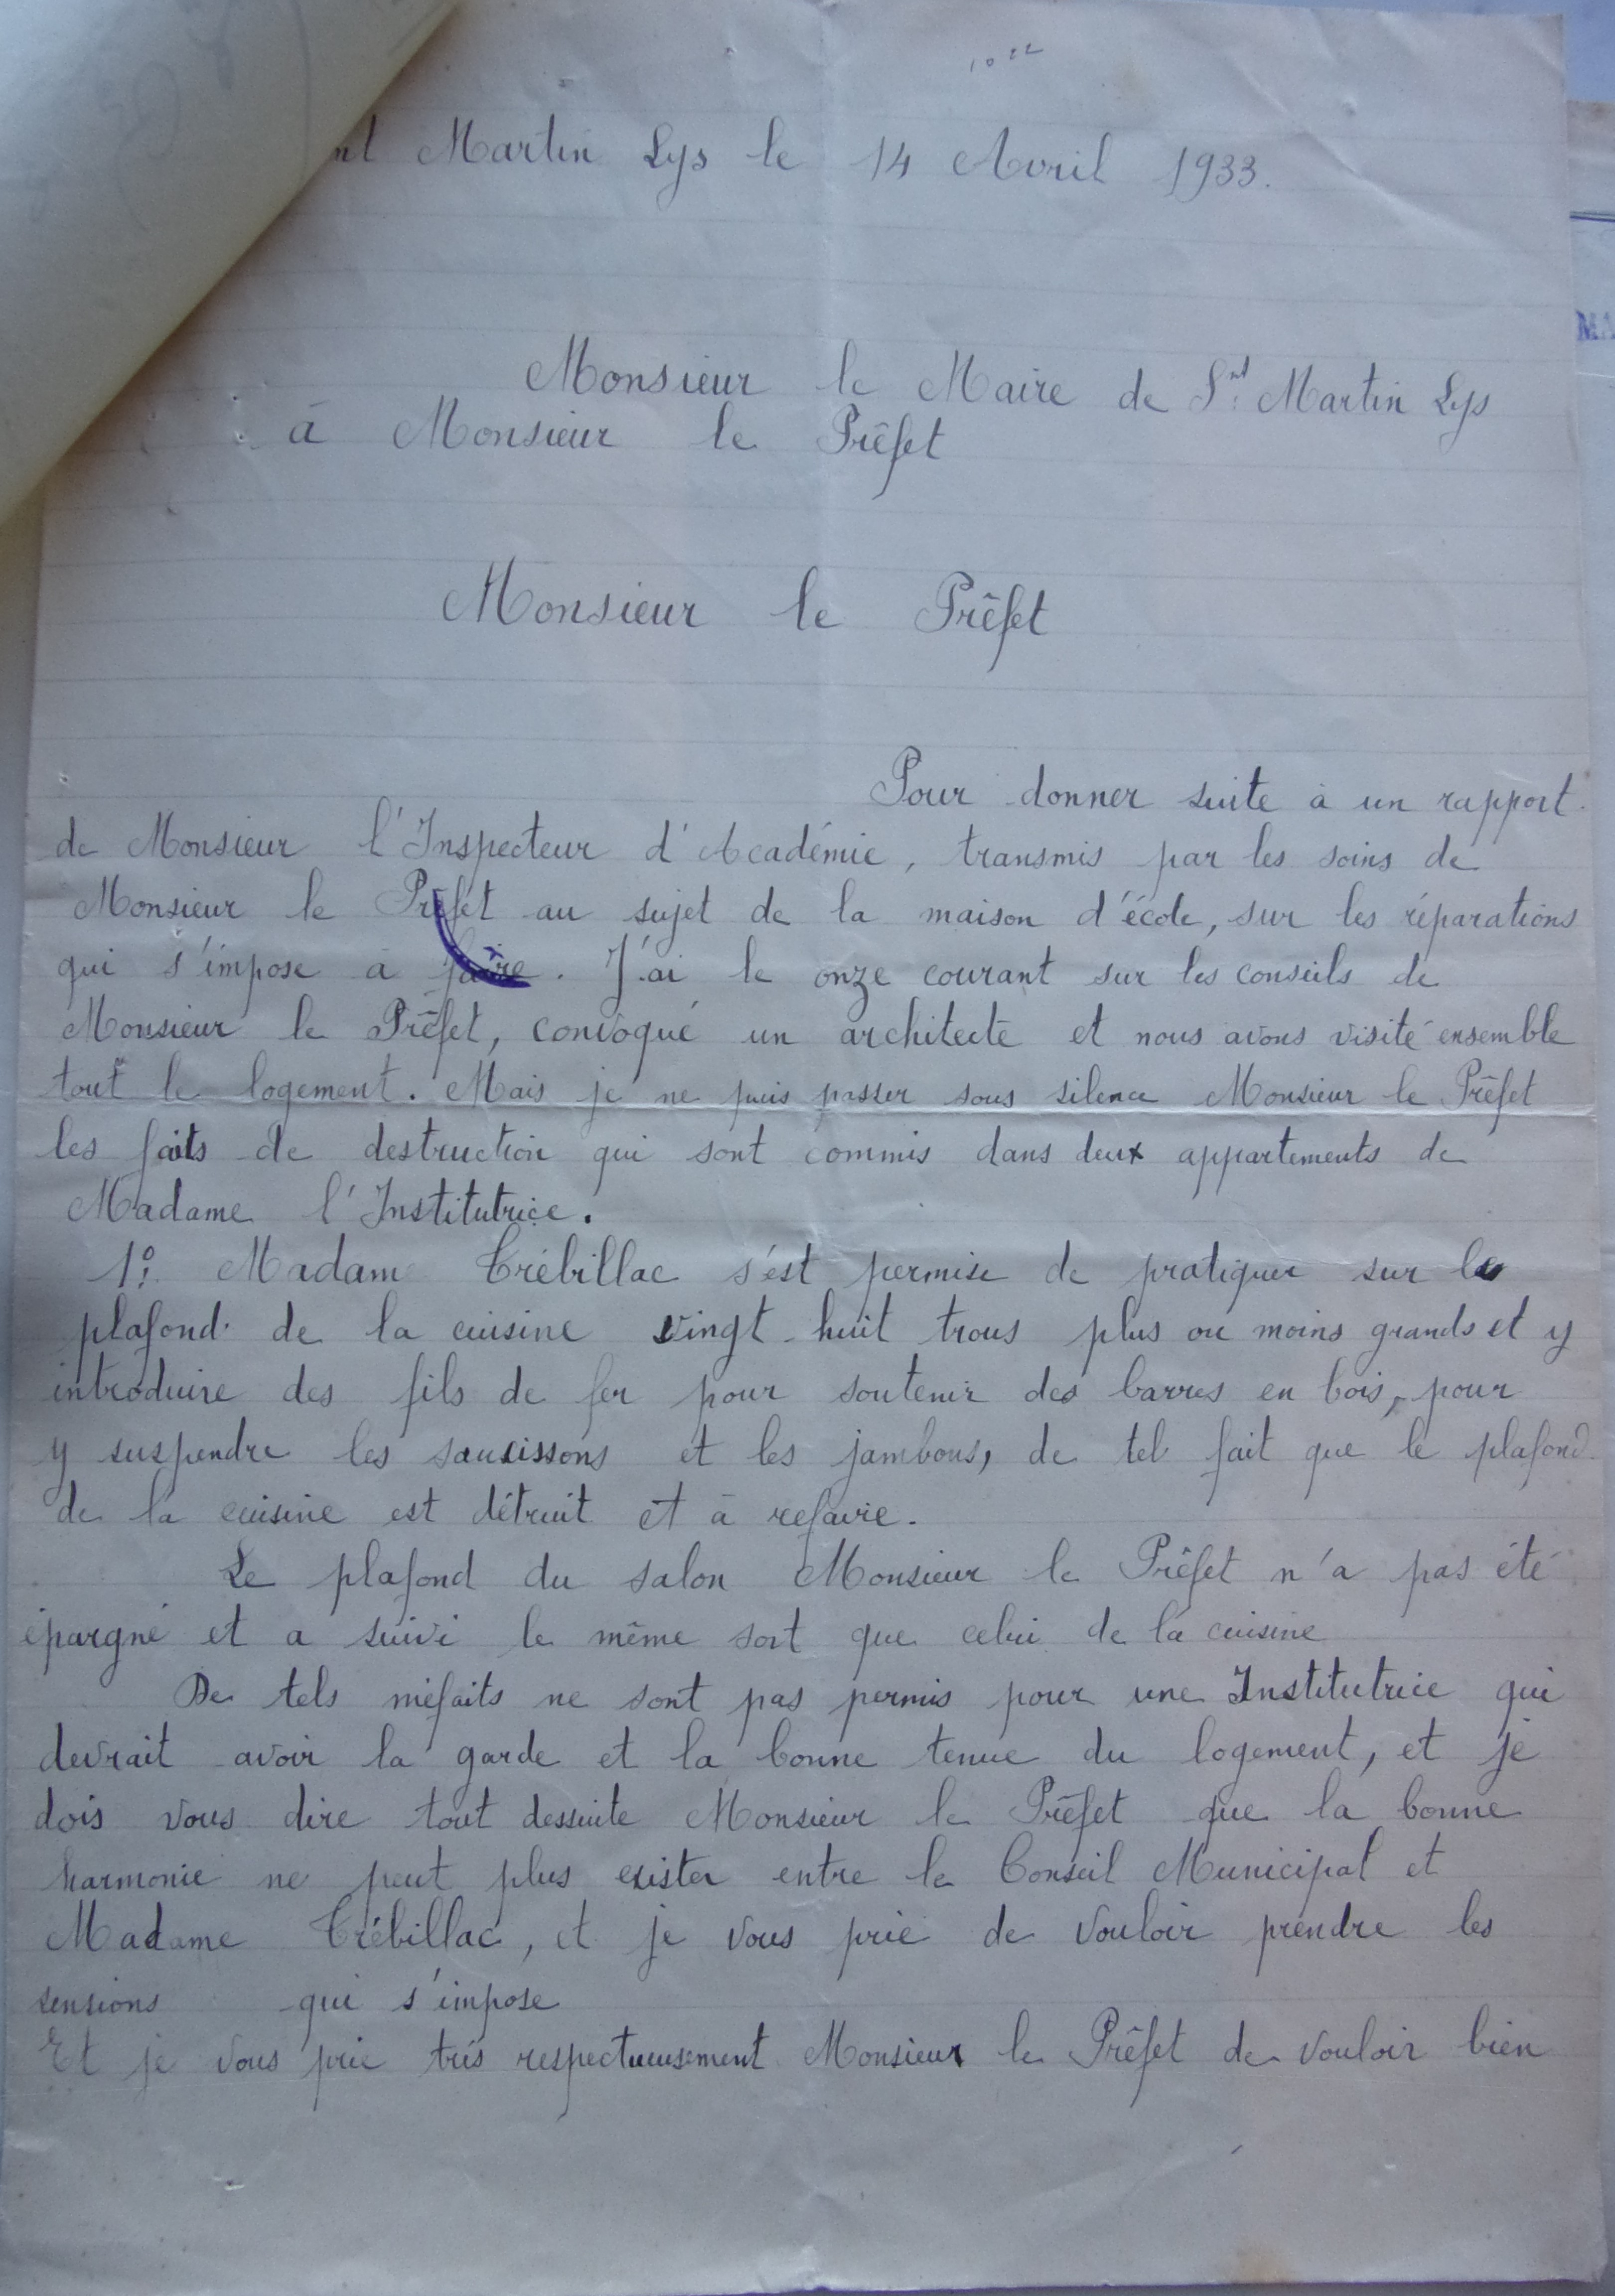 nt Martin Lys le 14 Avril 1933.
Monsieur le Maire de Snt Martin Lys
à Monsieur le Prêfet
Monsieur le Prêfet
Pour donner suite à un rapport
de Monsieur l'Inspecteur d'Académie, transmis par les soins de
Monsieur le Prêfet au sujet de la maison d'école, sur les réparations
qui s'impose a faire. J'ai le onze courant sur les conseils de
Monsieur le Prêfet, convoqué un architecte et nous avons visité ensemble
tout le logement. Mais je ne puis passer sous silence Monsieur le Prêfet
les faits de destruction qui sont commis dans deux appartements de
Madame l'Institutrice.
1º: Madam Trébillac s'ést permise de pratiquer sur le
plafond de la cuisine vingt huit trous plus ou moins grands et y
introduire des fils de fer pour soutenir des barres en bois, pour
y suspendre les saucissons et les jambons, de tel fait que le plafond
de la cuisine est détruit et à refaire.
Le plafond du salon Monsieur le Prêfet n'a pas été
épargné et a suivi le même sort que celui de la cuisine
De tels méfaits ne sont pas permis pour une Institutrice qui
devrait avoir la garde et la bonne tenue du logement, et je
dois vous dire tout dessuite Monsieur le Prêfet que la bonne
harmonie ne peut plus exister entre le Conseil Municipal et
Madame Trébillac, et je vous prie de vouloir prendre les
sensions qui s'impose
Et je vous prie très respectueusement Monsieur le Prêfet de vouloir bien